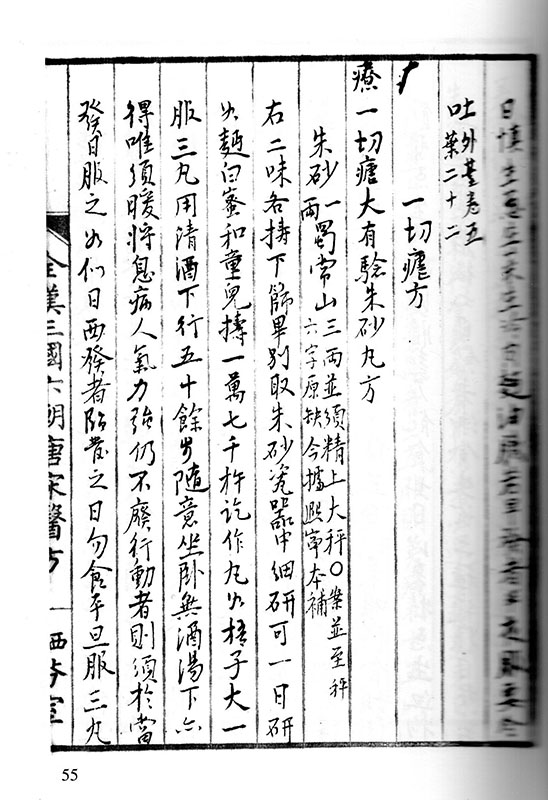 日慎生
吐外臺卷五
葉二十二
一切瘧方
療一切瘧大有驗朱砂丸方
朱砂一兩蜀常山三兩並須精上大秤〇案並至秤
六字原缺今據熙寧本補
右二味各擣下篩畢別取朱砂瓷器中細研可一日研
如麵白蜜和童兒擣一萬七千杵訖作丸如梧子大一
服三丸用清酒下行五十餘步隨意坐卧無酒湯下亦
得唯須暖將息病人氣力強仍不廢行動者則須於當
發日服之如日西發者臨發之日勿食平旦服三丸
全漢三國六朝唐宋醫方 一 栖芬室
55